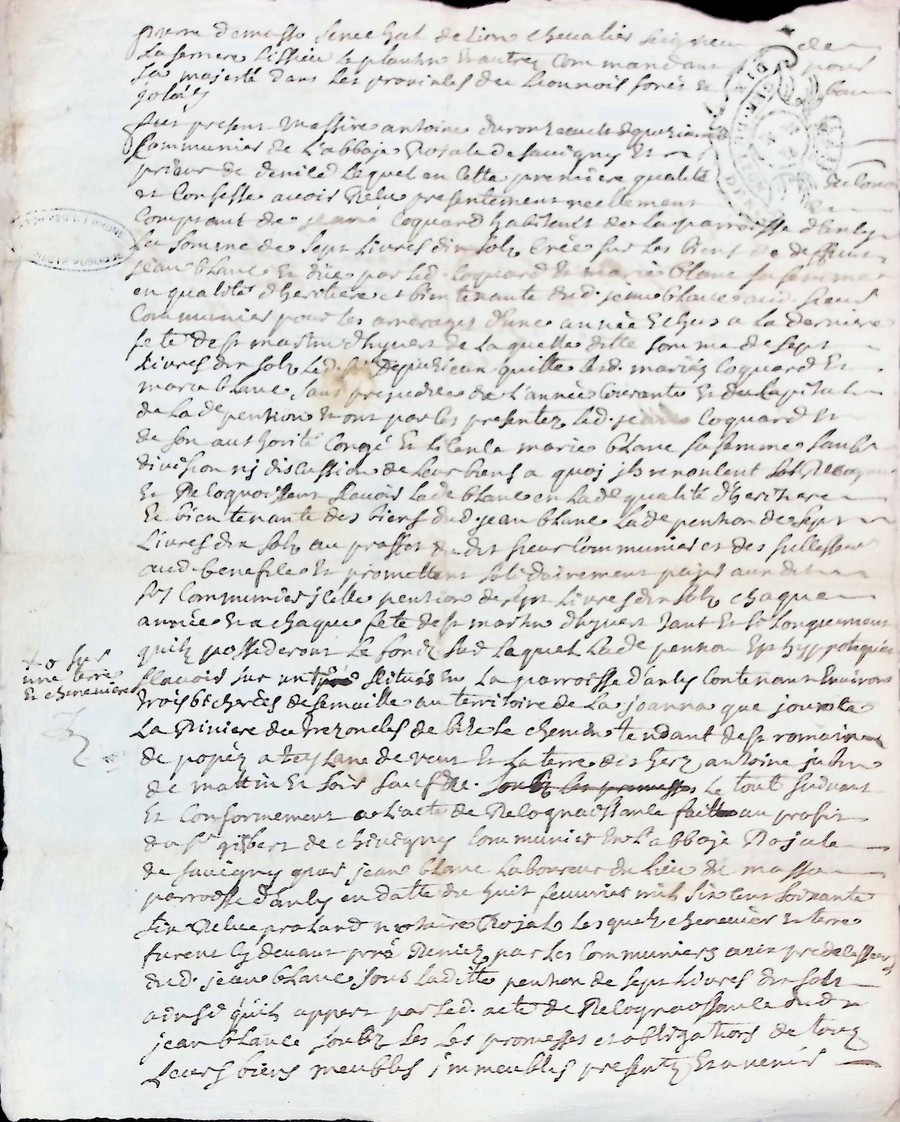 pierre demasso senechal de lion chevalier seigneur de
la ferriere lissieu le plantin et autres commandant pour
sa majesté dans les provinces du lionnois forés et bau
jolois
fut present messire antoine
communier de l'abbaje Rojale de savigny Et
prieur de denicé lequel en cette premiere qualité
et confesse avoir Receu presentement reellement
comptant de jeanne coquard habitant de la parroisse d'anly
la somme de sept livres dix solz créé sur les biens de deffunt
jean blanc Et düe par led. coquard Et marie blanc sa femme
en qualité d'heritiere et bien tenante dud. jean blanc aud. sieur
communier pour les arrerages d'une année Echus a la derniere
fete de st martin d'hyvert de laquelle ditte somme de sept
livres dix solz led. sr quitte lesd. mariez coquard Et
marie blanc sans prejudice de l'année courante Et du capital
de la de pention Et ont par les presentes led. jean coquard Et
de son authorité congé Et licence marie blanc sa femme sans
division nj discussion de leur biens a quoj ils renoncent
Et Recognoissent scavoir lade blanc en lade qualité d'heritiere
Et bien tenante des biens dud. jean blanc lade pention de sept
livres dix solz au proffit du dit sieur communier et des successeurs
aud. benefice Et promettent solidairement paijer aud dit
sr communier jcelle pention de sept livres dix solz chaque
année Et a chaque fete de st martin d'hyvert tant Et sy longuement
quilz possederont le fondz sud lequel lade pention Est hyppotequée
scavoir sur scitués en la parroisse d'anly contenant Environ
+ o sur
une terre
Et cheneviere
trois bicherées de semaille au territoire de la joanna que jouxte
la Riviere du trezoncles de bize le chemin tendant de st romain
de popéz a de vent Et la terre des hers antoine
de mattin Et soir sauf &c. soubz les promesses le tout suivant
Et conformement a l'acte de Recognoissance faitte au profit
du sr gilbert de chevigny communier En l'abbaje Rojale
de savigny par jean blanc laboureur du lieu de
parroisse d'anly en datte du huit fevvrier mil six cent soixante
six Receu notaire Rojal lesquelz chenevier Et terre
furent cy devant par les communiers aux predecesseurs
dud. jean blanc sous laditte pention de sept livres dix solz
ainsy qu'il appert par led. acte de Recognoissance dud
jean blanc soubz les les promesses et obligations de tous
leurs biens meubles jmmeubles presentz Et avenir